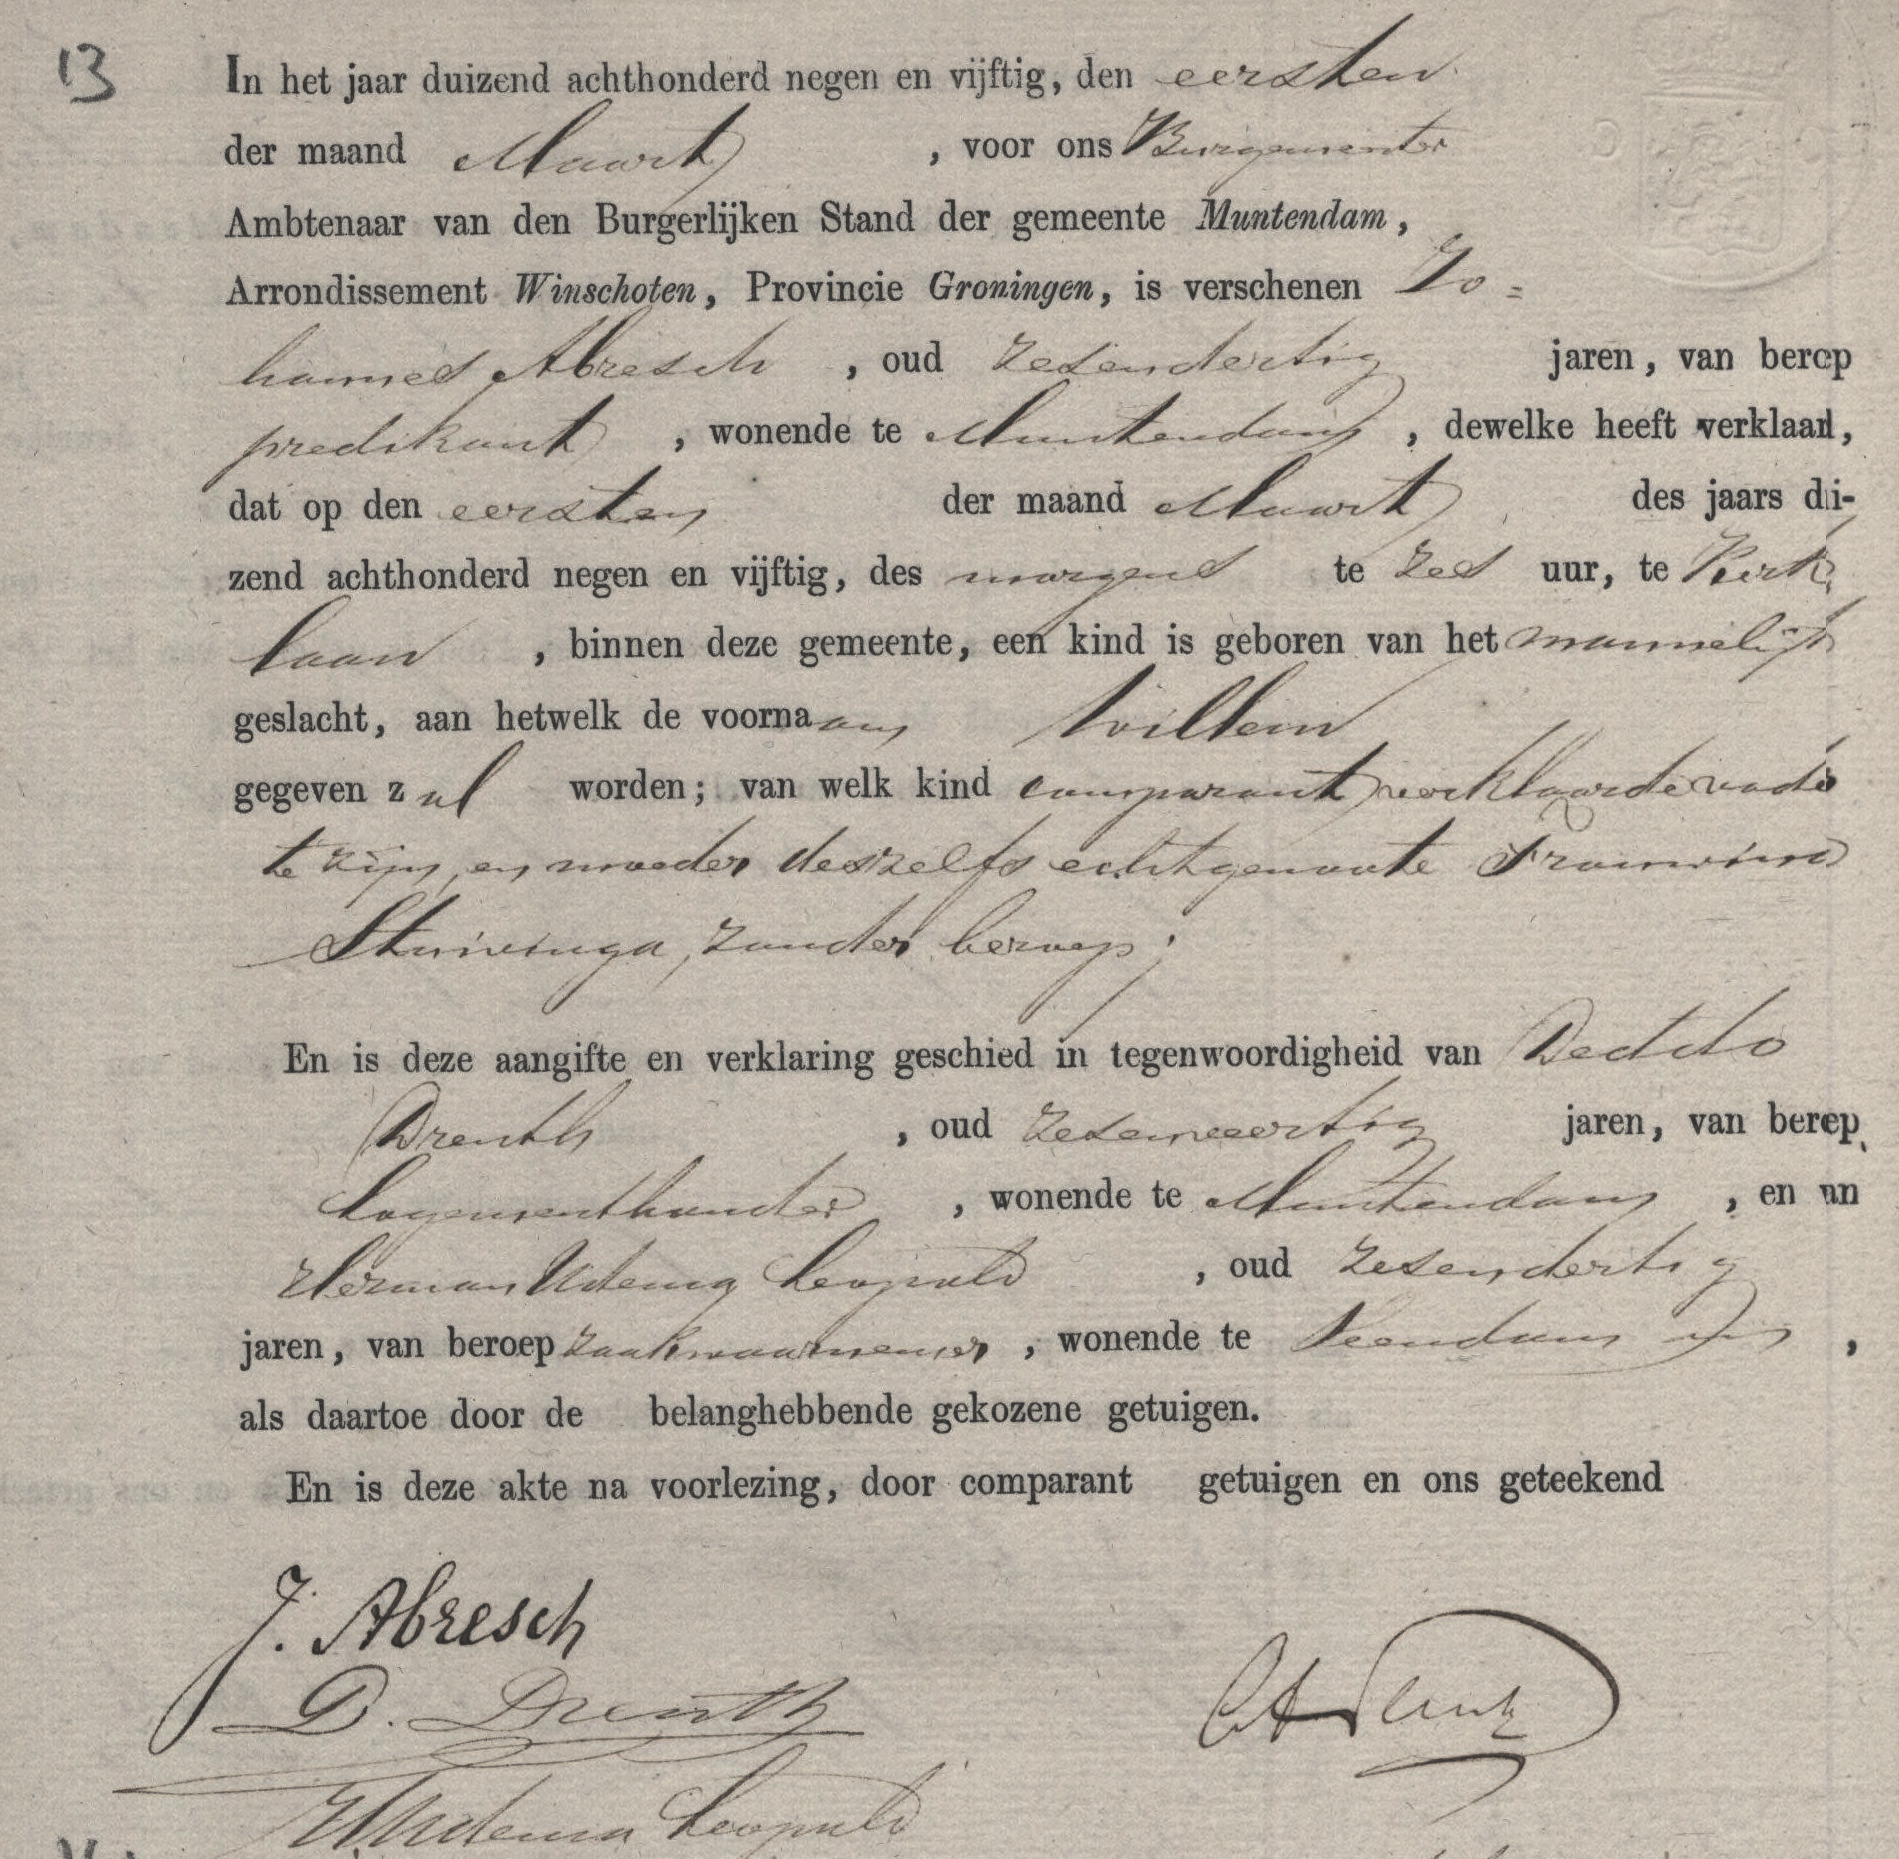 13
In het jaar duizend achthonderd negen en vijftig, den eersten
der maand Maart , voor ons Burgemeester
Ambtenaar van den Burgerlijken Stand der gemeente Muntendam,
Arrondissement Winschoten, Provincie Groningen, is verschenen Jo=
hannes Abresch , oud zesendertig jaren, van beroep
predikant , wonende te Muntendam , dewelke heeft verklaard,
dat op den eersten der maand Maart des jaars dui-
zend achthonderd negen en vijftig, des morgens te zes uur, te Kerk
laan , binnen deze gemeente, een kind is geboren van het mannelijk
geslacht, aan hetwelk de voornaam Willem
gegeven zal worden; van welk kind comparant verklaarde vader
te zijn, en moeder deszelfs echtgenoote Frouwina
Stuivinga, zonder beroep;
En is deze aangifte en verklaring geschied in tegenwoordigheid van Deddo
Drenth , oud zesenveertig jaren, van beroep
Logementhouder , wonende te Muntendam , en van
Herman Udema Leopold , oud zesendertig
jaren, van beroep zaakwaarnemer , wonende te Veendam ,
als daartoe door de belanghebbende gekozene getuigen.
En is deze akte na voorlezing, door comparant getuigen en ons geteekend
J. Abresch
D. Drenth
H Udema Leopold